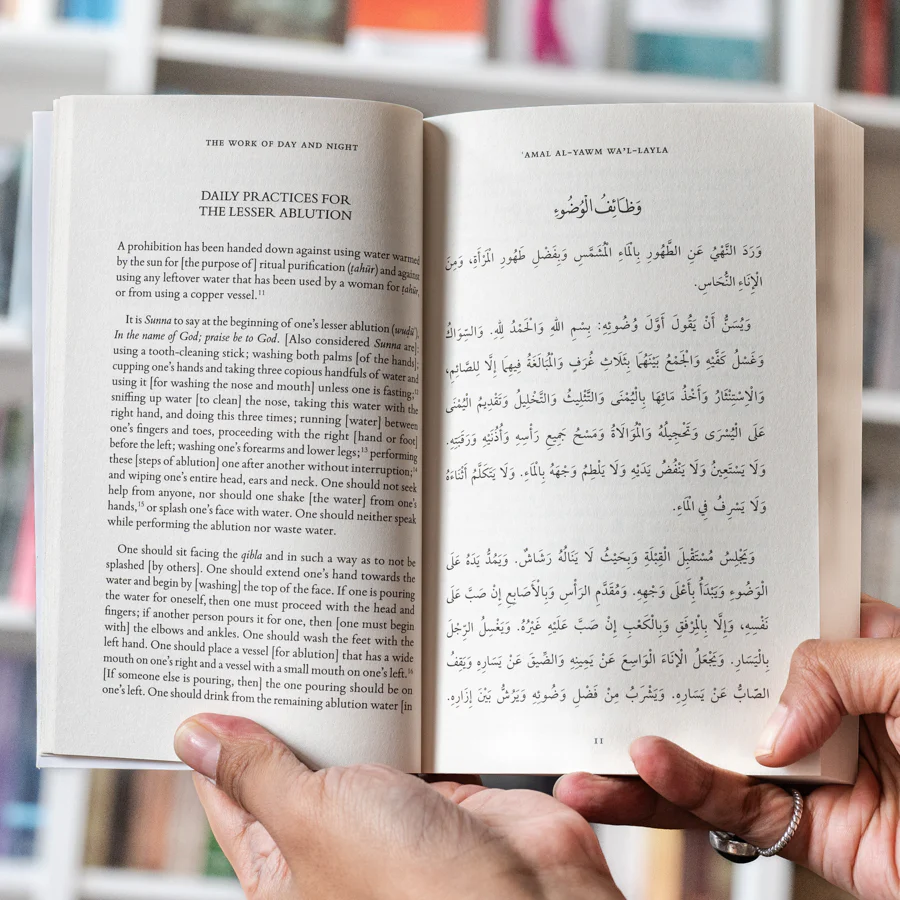 THE WORK OF DAY AND NIGHT
DAILY PRACTICES FOR
THE LESSER ABLUTION
A prohibition has been handed down against using water warmed
by the sun for [the purpose of] ritual purification (ṭahūr) and against
using any leftover water that has been used by a woman for ṭahūr,
or from using a copper vessel.¹¹
It is Sunna to say at the beginning of one's lesser ablution (wuḍūʾ),
In the name of God; praise be to God. [Also considered Sunna are]:
using a tooth-cleaning stick; washing both palms [of the hands];
cupping one's hands and taking three copious handfuls of water and
using it [for washing the nose and mouth] unless one is fasting;¹²
sniffing up water [to clean] the nose, taking this water with the
right hand, and doing this three times; running [water] between
one's fingers and toes, proceeding with the right [hand or foot]
before the left; washing one's forearms and lower legs;¹³ performing
these [steps of ablution] one after another without interruption;¹⁴
and wiping one's entire head, ears and neck. One should not seek
help from anyone, nor should one shake [the water] from one's
hands,¹⁵ or splash one's face with water. One should neither speak
while performing the ablution nor waste water.
One should sit facing the qibla and in such a way as to not be
splashed [by others]. One should extend one's hand towards the
water and begin by [washing] the top of the face. If one is pouring
the water for oneself, then one must proceed with the head and
fingers; if another person pours it for one, then [one must begin
with] the elbows and ankles. One should wash the feet with the
left hand. One should place a vessel [for ablution] that has a wide
mouth on one's right and a vessel with a small mouth on one's left.¹⁶
[If someone else is pouring, then] the one pouring should be on
one's left. One should drink from the remaining ablution water [in
ʿAMAL AL-YAWM WA'L-LAYLA
وَظَائِفُ الْوُضُوءِ
وَرَدَ النَّهْيُ عَنِ الطَّهُورِ بِالْمَاءِ الْمُشَمَّسِ وَبِفَضْلِ طَهُورِ الْمَرْأَةِ، وَمِنَ
الْإِنَاءِ النُّحَاسِ.
وَيُسَنُّ أَنْ يَقُولَ أَوَّلَ وُضُوئِهِ: بِسْمِ اللهِ وَالْحَمْدُ لِلهِ. وَالسِّوَاكُ
وَغَسْلُ كَفَّيْهِ وَالْجَمْعُ بَيْنَهُمَا بِثَلَاثِ غُرَفٍ وَالْمُبَالَغَةُ فِيهِمَا إِلَّا لِلصَّائِمِ،
وَالْاِسْتِنْثَارُ وَأَخْذُ مَائِهَا بِالْيُمْنَى وَالتَّثْلِيثُ وَالتَّخْلِيلُ وَتَقْدِيمُ الْيُمْنَى
عَلَى الْيُسْرَى وَتَحْجِيلُهُ وَالْمُوَالَاةُ وَمَسْحُ جَمِيعِ رَأْسِهِ وَأُذُنَيْهِ وَرَقَبَتِهِ.
وَلَا يَسْتَعِينُ وَلَا يَنْفُضُ يَدَيْهِ وَلَا يَلْطِمُ وَجْهَهُ بِالْمَاءِ. وَلَا يَتَكَلَّمُ أَثْنَاءَهُ
وَلَا يَسْرِفُ فِي الْمَاءِ.
وَيَجْلِسُ مُسْتَقْبِلَ الْقِبْلَةِ وَبِحَيْثُ لَا يَنَالُهُ رَشَاشٌ. وَيَمُدُّ يَدَهُ عَلَى
الْوَضُوءِ وَيَبْدَأُ بِأَعْلَى وَجْهِهِ. وَمُقَدَّمِ الرَّأْسِ وَبِالْأَصَابِعِ إِنْ صَبَّ عَلَى
نَفْسِهِ، وَإِلَّا بِالْمِرْفَقِ وَبِالْكَعْبِ إِنْ صَبَّ عَلَيْهِ غَيْرُهُ. وَيَغْسِلُ الرِّجْلَ
بِالْيَسَارِ. وَيَجْعَلُ الْإِنَاءَ الْوَاسِعَ عَنْ يَمِينِهِ وَالضَّيِّقَ عَنْ يَسَارِهِ وَيَقِفُ
الصَّابُّ عَنْ يَسَارِهِ. وَيَشْرَبُ مِنْ فَضْلِ وَضُوئِهِ وَيَرُشُّ بَيْنَ إِزَارِهِ.
11